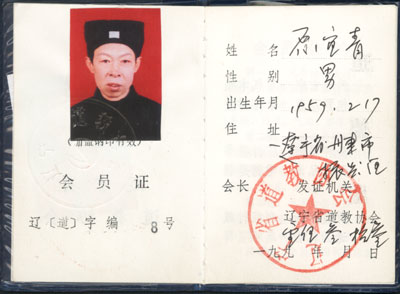 (加盖钢印有效)
会员证
辽〔道〕字编 8号
姓名 原宜青
性别 男
出生年月 1959.2.17
住址
辽宁省丹东市
振
会长 发证机关
辽宁省道教协会
一九九 年 月 日
省道教协会